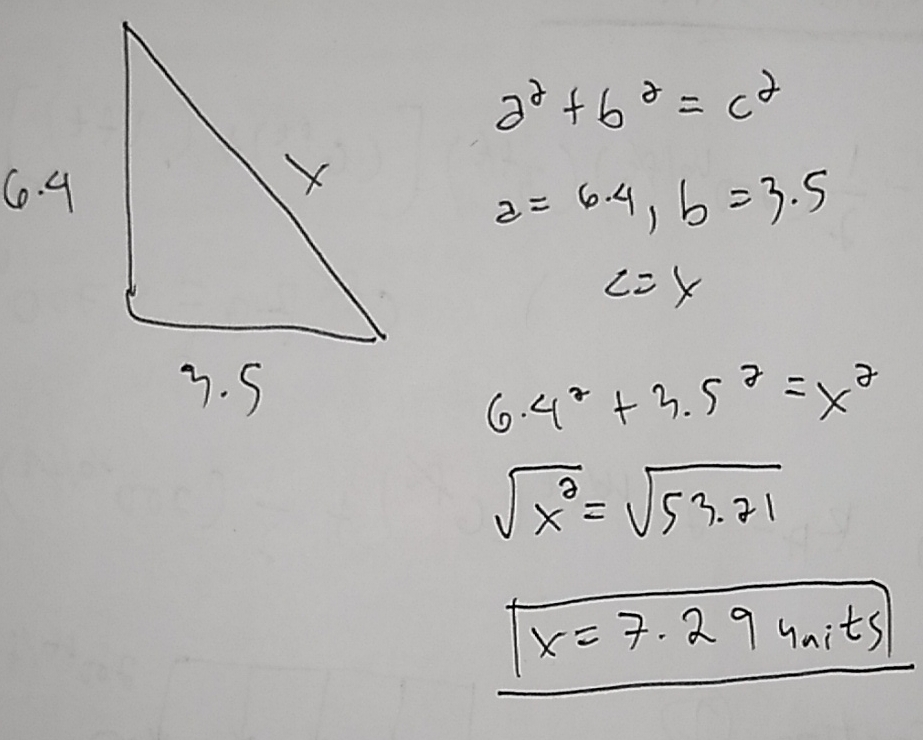 6.4
x
3.5
a² + b² = c²
a = 6.4, b = 3.5
c = x
6.4² + 3.5² = x²
√x² = √53.21
x = 7.29 units